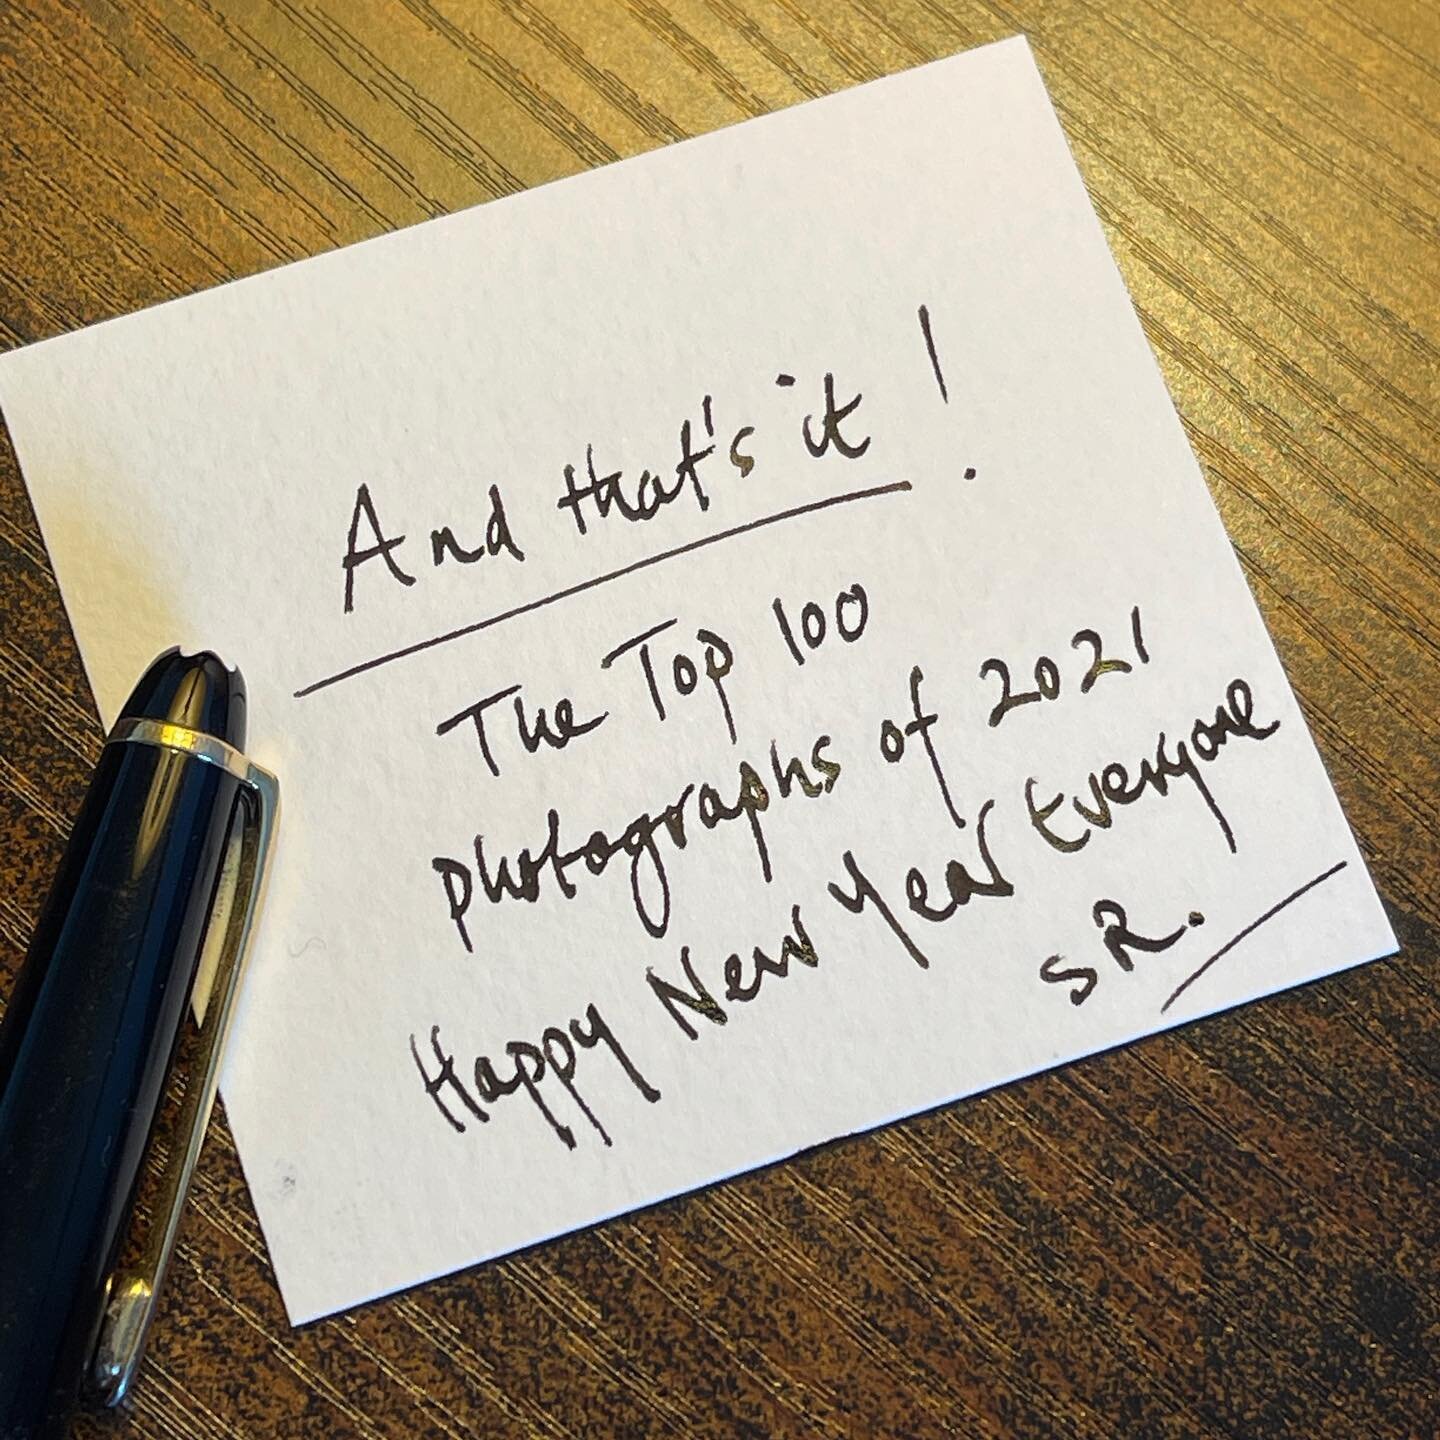 And that's it!
The Top 100
photographs of 2021
Happy New Year Everyone
SR.